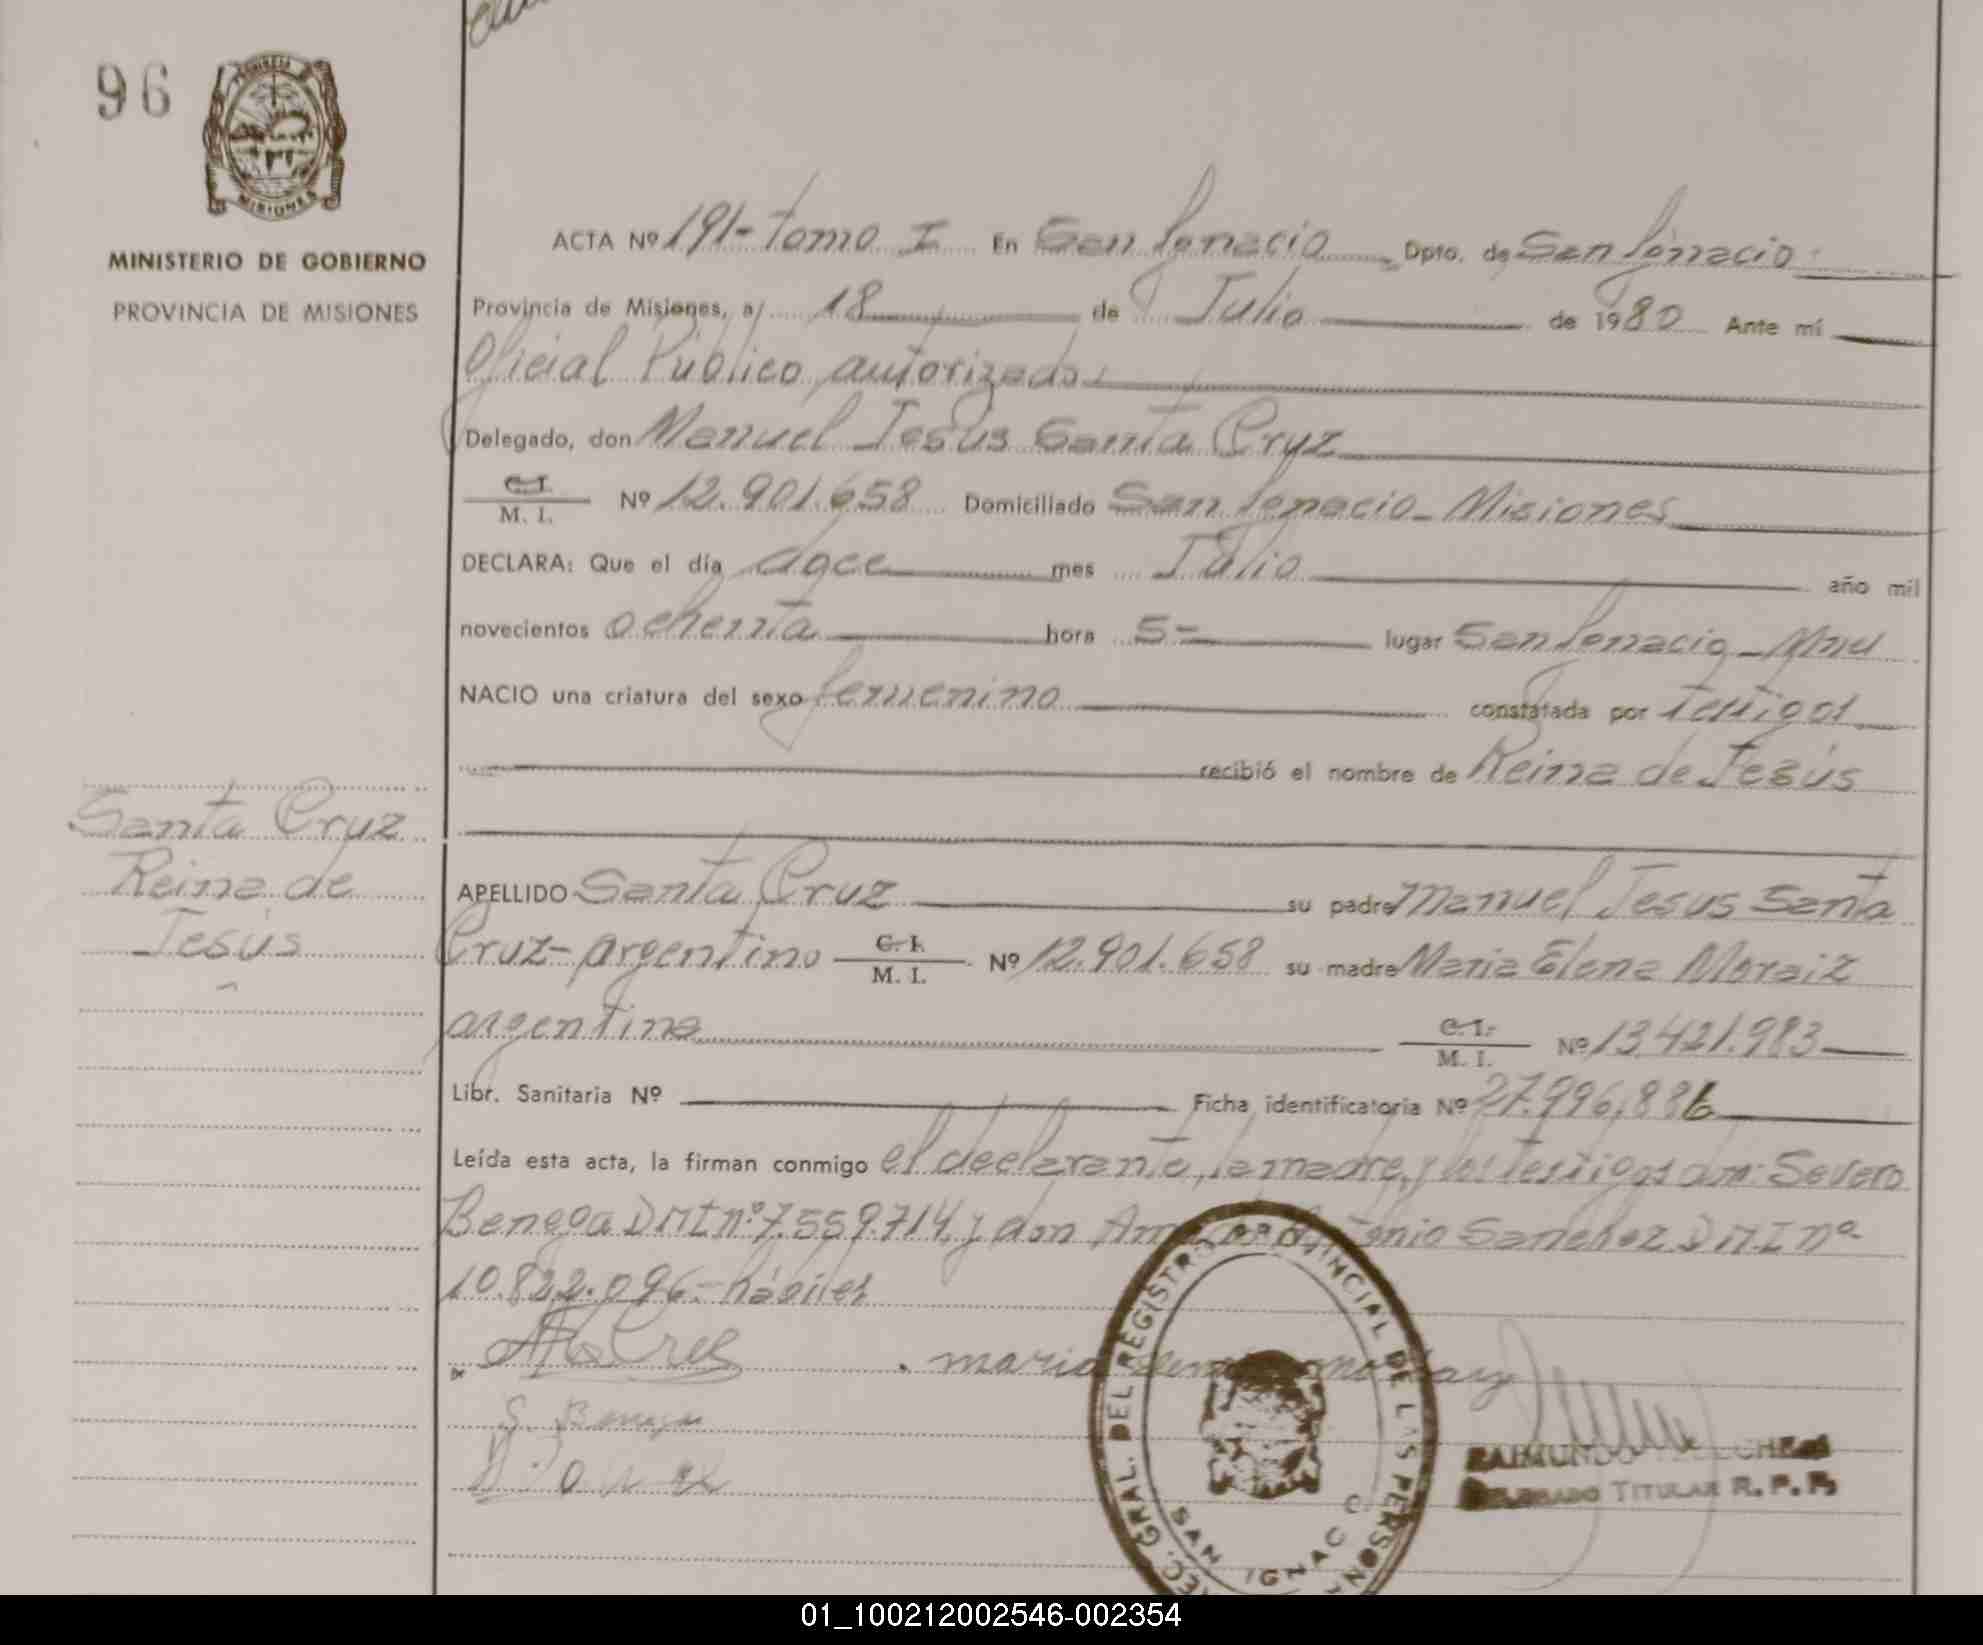 96
PROVINCIA
MISIONES
MINISTERIO DE GOBIERNO
PROVINCIA DE MISIONES
ACTA Nº 191-Tomo I En San Ignacio Dpto. de San Ignacio
Provincia de Misiones, a 18 de Julio de 1980 Ante mí
Oficial Público autorizado
Delegado, don Manuel Jesus Santa Cruz
C. I.
M. I. Nº 12.901.658 Domiciliado San Ignacio - Misiones
DECLARA: Que el día once mes Julio año mil
novecientos ochenta hora 5- lugar San Ignacio - Mnes
NACIO una criatura del sexo femenino constatada por testigos
recibió el nombre de Reina de Jesús
Santa Cruz
Reina de
Jesús
APELLIDO Santa Cruz su padre Manuel Jesus Santa
Cruz - argentino C. I. M. I. Nº 12.901.658 su madre Maria Elena Moraiz
argentina C. I. M. I. Nº 13.421.983
Libr. Sanitaria Nº Ficha identificatoria Nº 27.996.886
Leída esta acta, la firman conmigo el declarante, la madre, y los testigos don: Severo
Benega D M I nº 7.559.714, y don Antonio Sanchez D M I nº
10.822.096.- hábiles
S. Benega
maria
GRAL. DEL REGISTRO PROVINCIAL DE LAS PERSONAS
SAN IGNACIO
RAIMUNDO
DELEGADO TITULAR R. P. P.
01_100212002546-002354